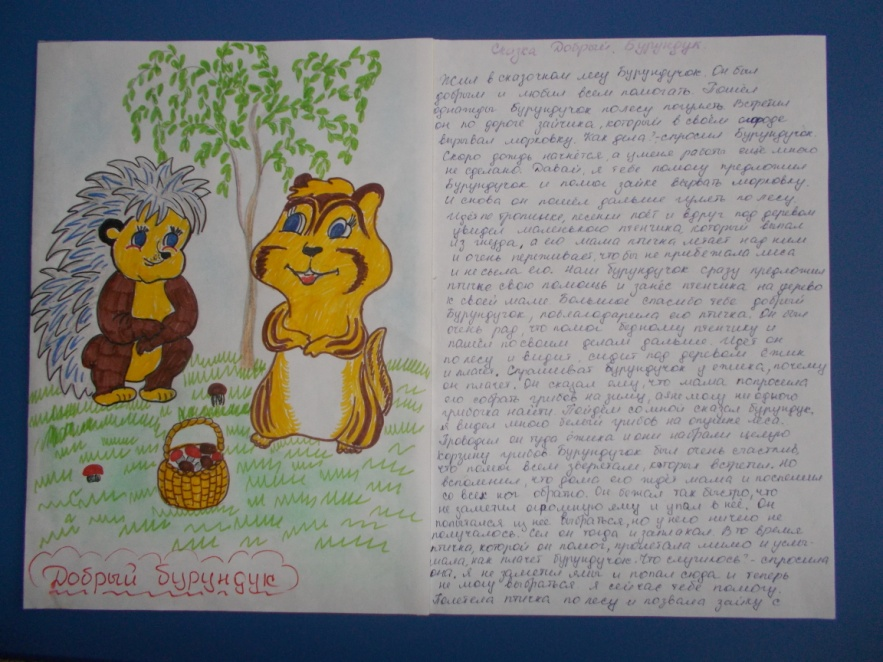 Добрый бурундук
Сказка Добрый Бурундук.
Жил в сказочном лесу бурундучок. Он был
добрым и любил всем помогать. Пошёл
однажды бурундучок по лесу погулять. Встретил
он по дороге зайчика, который в своём огороде
вырывал морковку. Как дела?-спросил бурундучок.
Скоро дождь начнётся, а у меня работы ещё много
не сделано. Давай, я тебе помогу предложил
бурундучок и помог зайке вырвать морковку.
И снова он пошёл дальше гулять по лесу.
Идёт по тропинке, песенки поёт и вдруг под деревом
увидел маленького птенчика, который выпал
из гнезда, а его мама птичка летает над ним
и очень переживает, чтобы не прибежала лиса
и не съела его. Наш бурундучок сразу предложил
птичке свою помощь и занёс птенчика на дерево
к своей маме. Большое спасибо тебе добрый
бурундучок, поблагодарила его птичка. Он был
очень рад, что помог бедному птенчику и
пошёл по своим делам дальше. Идёт он
по лесу и видит, сидит под деревом ёжик
и плачет. Спрашивает бурундучок у ёжика, почему
он плачет. Он сказал ему, что мама попросила
его собрать грибов на зиму, а я не могу ни одного
грибочка найти. Пойдём со мной сказал бурундук.
Я видел много белых грибов на опушке леса.
Проводил он туда ёжика и они набрали целую
корзину грибов. Бурундучок был очень счастлив,
что помог всем зверюшкам, которых встретил. Но
вспомнил, что дома его ждёт мама и поспешил
со всех ног обратно. Он бежал так быстро, что
не заметил огромную яму и упал в неё. Он
попытался из неё выбраться, но у него ничего не
получалось. Сел он тогда и заплакал. В то время
птичка, которой он помог, пролетала мимо и услы-
шала, как плачет бурундучок. Что случилось?-спросила
она. Я не заметил ямы и попал сюда и теперь
не могу выбраться. Я сейчас тебе помогу.
Полетела птичка по лесу и позвала зайку с